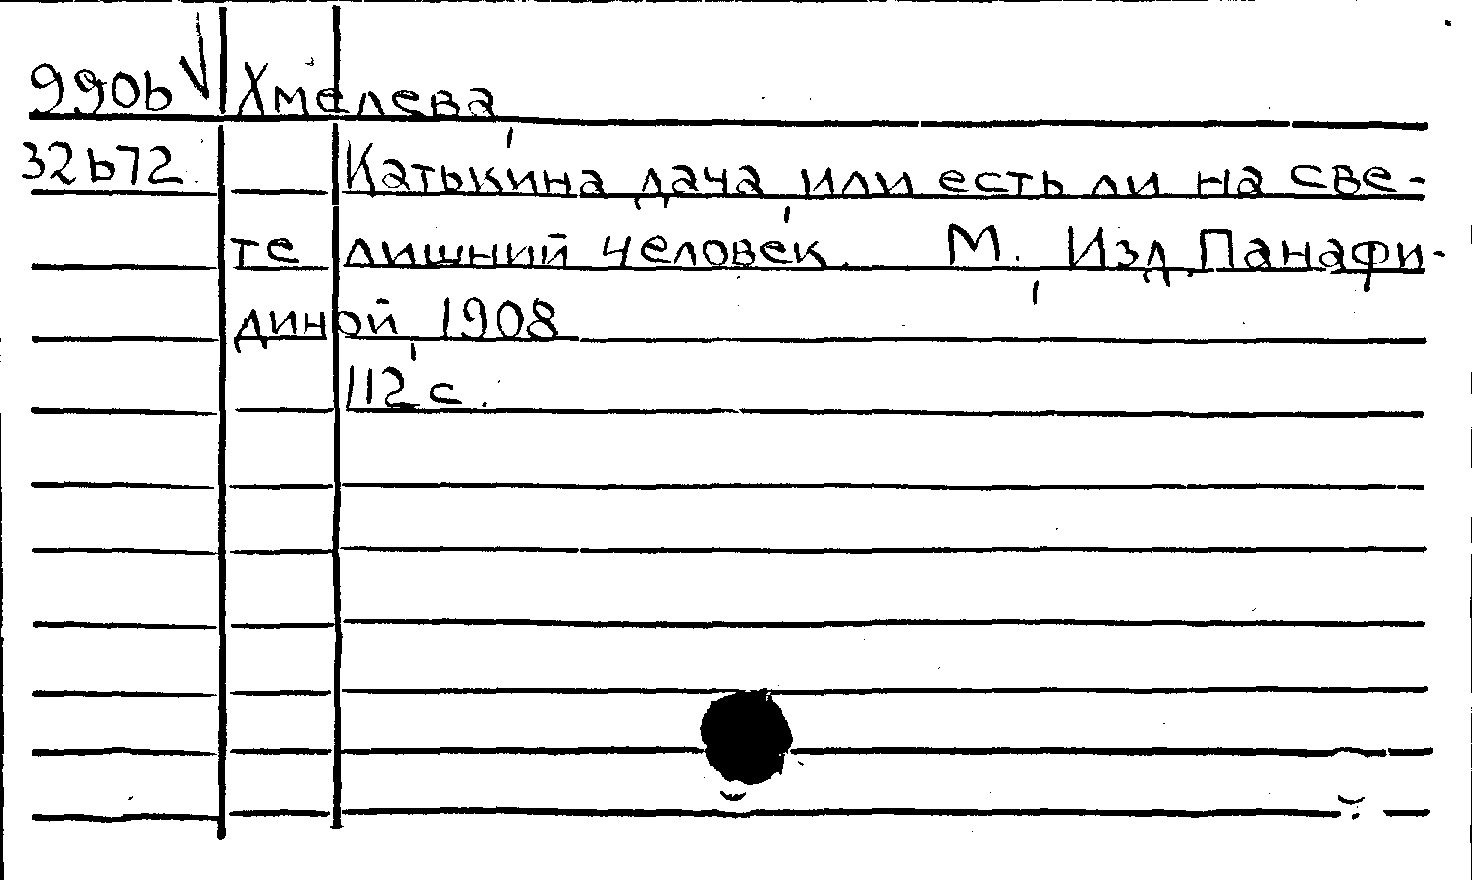 990b √ Хмелева,
32b72 Катькина дача, или есть ли на све-
те лишний человек. М., Изд. Панафи-
диной, 1908
112 с.